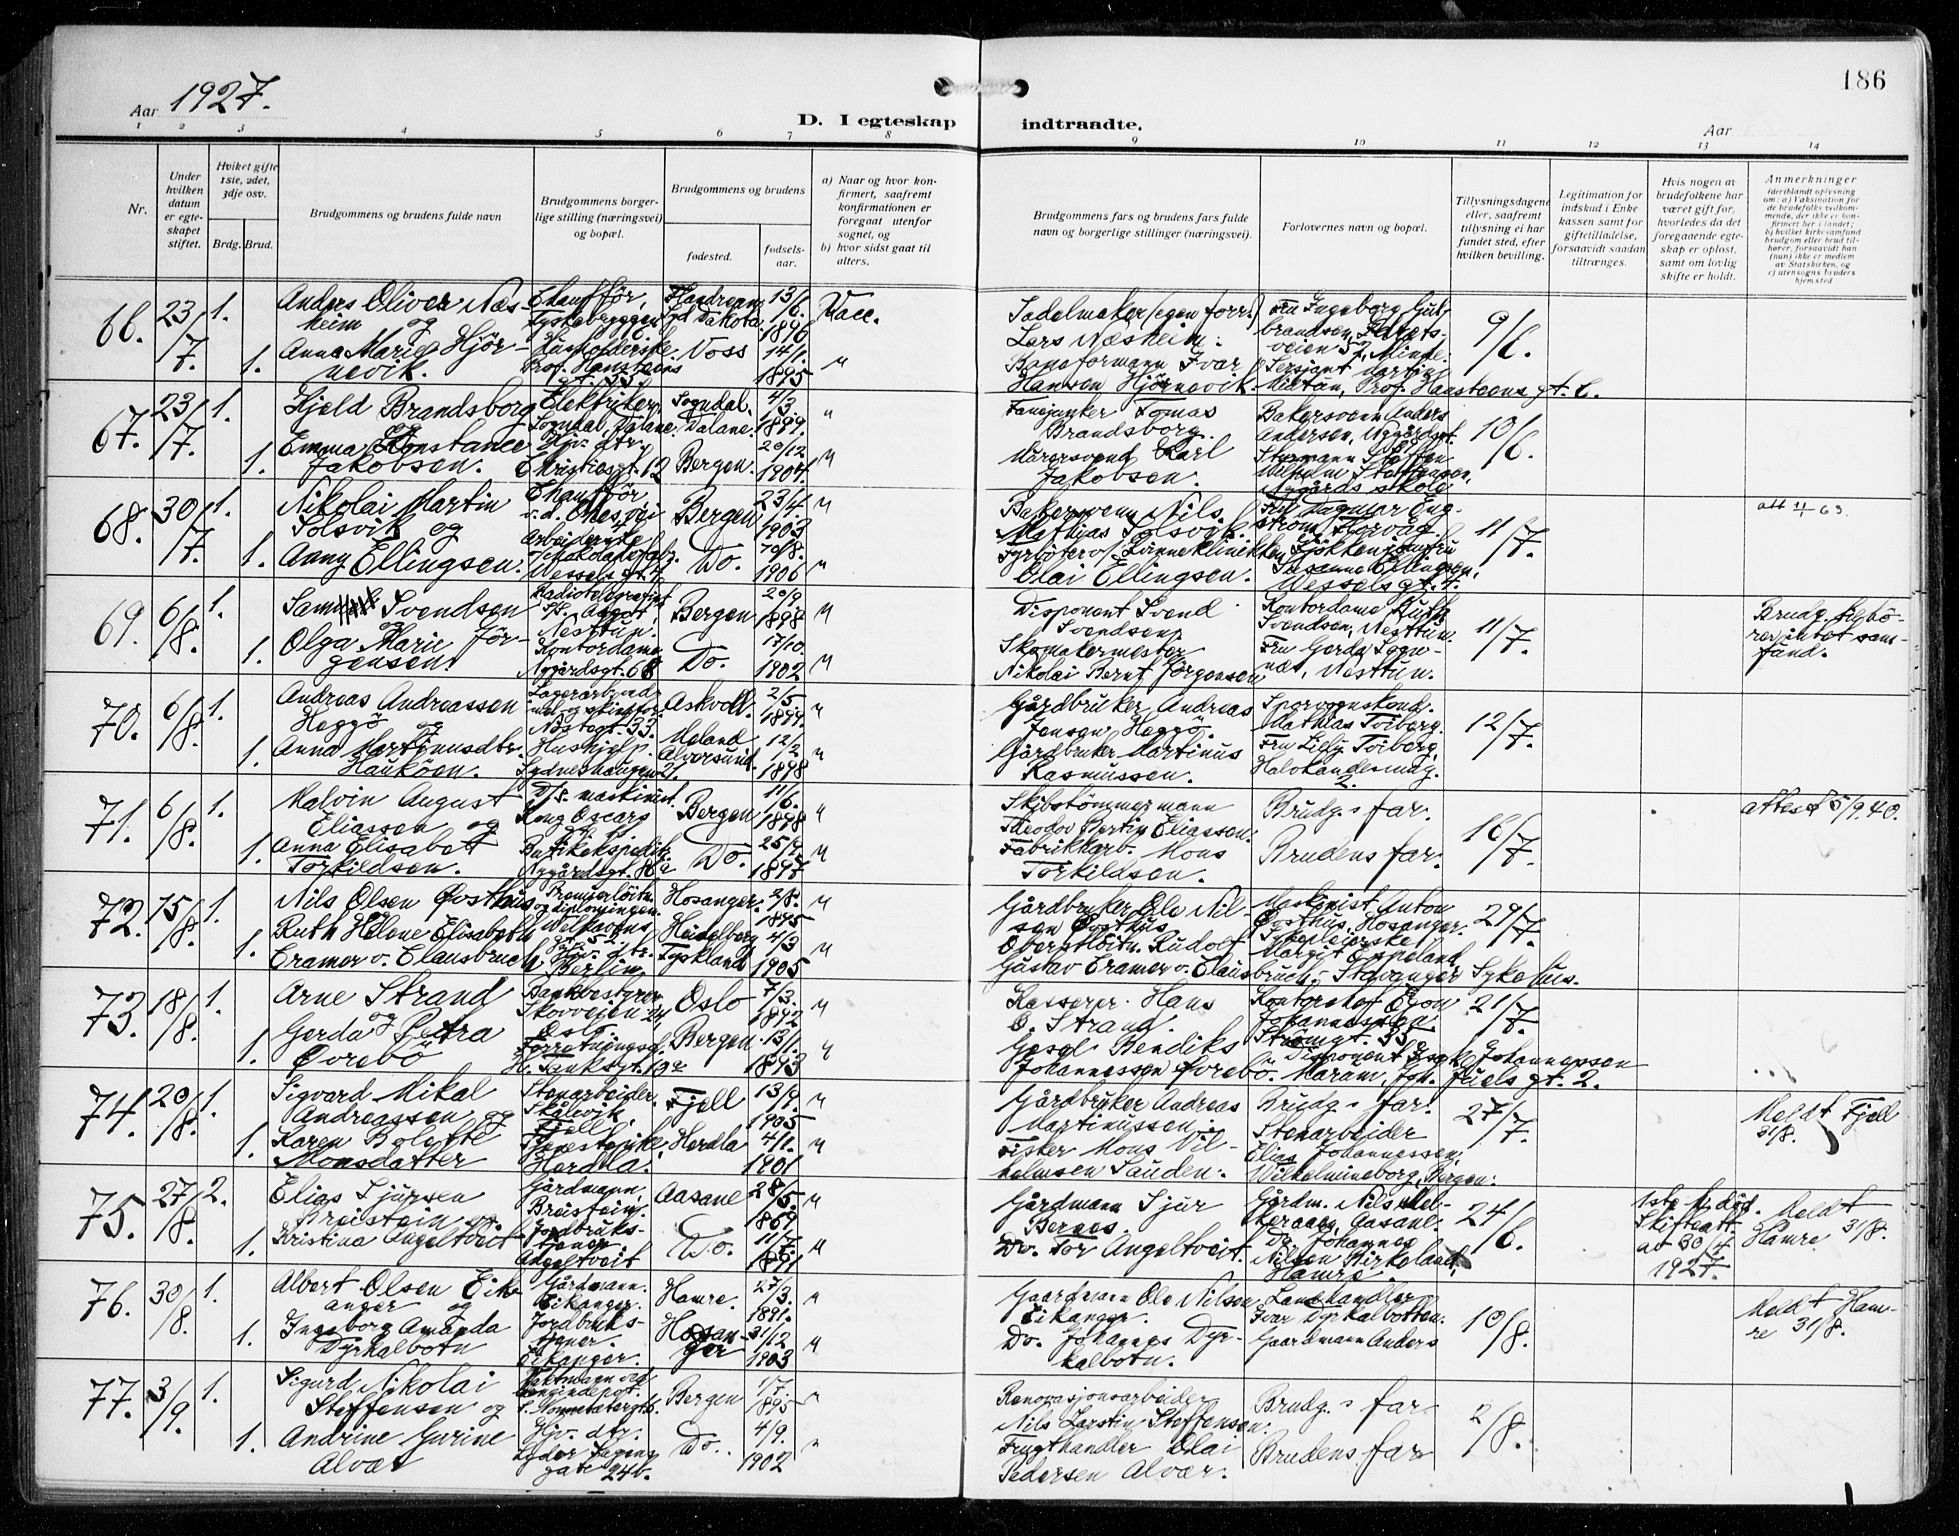 Aar 1927.
186
D. I egteskap indtraadte.
Aar
1 2 3 4 5 6 7 8 9 10 11 12 13 14
Nr.
Under hvilken datum er egteskapet stiftet.
Hvilket gifte 1ste, 2det, 3dje osv.
Brdg. Brud.
Brudgommens og brudens fulde navn
Brudgommens borgerlige stilling (næringsvei) og bopæl.
Brudgommens og brudens
fødested.
fødselsaar.
a) Naar og hvor konfirmert, saafremt konfirmationen er foregaat utenfor sognet, og
b) hvor sidst gaat til alters.
Brudgommens fars og brudens fars fulde navn og borgerlige stillinger (næringsvei).
Forlovernes navn og bopæl.
Tillysningsdagene eller, saafremt tillysning ei har fundet sted, efter hvilken bevilling.
Legitimation for indskud i Enkekassen samt for giftetilladelse, forsaavidt saadan tiltrænges.
Hvis nogen av brudefolkene har været gift før, hvorledes da det foregaaende egteskap er opløst, samt om lovlig skifte er holdt.
Anmerkninger
66. 23/7. 1.
Anders Oliver Næsheim og
Chauffør, Tyskebryggen
13/6. 1896
Vacc.
Sadelmaker (egen forr.) Lars Næsheim.
Fru Ingeborg Gulbrandsen, 52, Minde.
9/6.
1. Anna Marie Hjörnevik.
Husholderske. Prof. Hansteens gt. 33.
Voss
14/1. 1895
"
Baneformann Ivar Hansen Hjörnevik.
Sersjant Martin Prof. Hansteens gt. 6.
67. 23/7. 1.
Kjeld Brandsborg og
Elektriker, Sogndal, Dalane.
Sogndal, Dalane.
4/3 1899.
"
Fanejunker Tomas Brandsborg.
Bakersvenn Anders Andersen, Nygårdsgt.
10/6.
1. Emma Konstance Jakobsen.
Hjv. dtr. Christiesgt. 12
Bergen.
20/12 1904.
"
Murersvend Karl Jakobsen.
Styrmann Steffen Wilhelm Steffensen, Nygårds skole
68. 30/7. 1.
Nikolai Martin Solsvik og
Chauffør
Bergen
23/4. 1903
"
Bakersvenn Nils Mathias Solsvik.
Fru Dagmar Engström
11/7.
att 11/1 63.
1. Anny Ellingsen.
Arbeiderske Wesselsgt. 4.
Do.
20/8. 1906
"
Fyrbøter v/ Kvinneklinikken Olai Ellingsen.
Kjøkkenjomfru Susanne Ellingsen, Wesselsgt. 4.
69. 6/8. 1.
Svendsen og
Radiotelegrafist Nesttun.
Bergen
20/9. 1898
"
Disponent Svend Svendsen
Kontordame Ruth Svendsen, Nesttun.
11/7.
Brudg. tilhörer intet samfund.
1. Olga Marie Jörgensen.
Kontordame Nygårdsgt. 68
Do.
17/10. 1902
"
Skomakermester Nikolai Bernt Jörgensen
Fru Gerda Nesttun.
70. 6/8. 1.
Andreas Andreassen Heggö og
Lagerarbeider
Askvoll.
2/5. 1899.
"
Gårdbruker Andreas Jensen Heggö.
Sporvognskond. Mathias Toiberg.
12/7.
1. Anna Martinusdtr. Hauköen.
Hushjelp. Sydneshaugen 21.
Meland Alversund.
12/2 1898
"
Gårdbruker Martinus Rasmussen.
Fru Lilly Toiberg,
71. 6/8. 1.
Malvin August Eliassen og
D/S. maskinist. Kong Oscars gt.
Bergen
11/6. 1898
"
Skibstömmermann Theodor Bertin Eliassen.
Brudg.s far.
16/7.
attest 5/9.40.
1. Anna Elisabet Torkildsen.
Butikekspeditr. Nygårdsgt. 86a
Do.
25/9. 1897
"
Fabrikkarb. Mons Torkildsen.
Brudens far.
72. 15/8. 1.
Nils Olsen Östhus og
Premierlöitn. og diplomingen. Welhavens gt. 52
Hosanger.
2/8. 1895
"
Gårdbruker Ole Nilsen Östhus
Maskinist Anton Östhus, Hosanger.
29/7.
1. Ruth Helene Elisabeth Cramer v. Clausbruch
Hjv. dtr. Berlin
Heidelberg Tyskland
4/3 1905
"
Oberstlöitn. Rudolf Gustav Cramer v. Clausbruch.
Margit Espeland, Stavanger Sykehus.
73. 18/8. 1.
Arne Strand og
Bankbestyrer Skovveien 24, Oslo.
Oslo
7/3. 1892
"
Kasserer Hans C. Strand.
Kontorchef Egon Johannessen Strömgt. 35.
21/7.
1. Gerda Petra Övrebö
Bergen.
13/1. 1893
"
Bendiks Johannessen Övrebö.
Disponent Isak Johannessen Juels gt. 2.
74. 20/8. 1.
Sigvard Mikal Andreassen og
Stenarbeider. Skålevik Fjell.
Fjell
13/9. 1905
"
Gårdbruker Andreas Martinussen.
Brudg.s far.
27/7.
Meldt Fjell 31/8.
1. Karen Bolette Monsdatter
Tjenestepike, Herdla.
Herdla
4/1. 1901
"
Fisker Mons Vilhelmsen Sauden.
Stenarbeider Elias Johannessen, Wilhelmineborg, Bergen.
75. 27/8. 2.
Elias Sjursen Breistein og
Gårdmann, Breistein.
Aasane
28/5. 1869.
"
Gårdmann Sjur Bernes.
Gårdm. Nils Aasane.
24/6.
1ste h. död. Skifteatt. av 30/4 1927.
Meldt Hamre 31/8.
1. Kristina Angeltveit
Jordbrukstjener Angeltveit
Do.
11/7. 1891
"
Do. Tor Angeltveit.
Do. Johannes Nilsen Birkeland, Hamre.
76. 30/8. 1.
Albert Olsen Eikanger og
Gårdmann. Eikanger.
Hamre.
27/3. 1891.
"
Gaardmann Ole Nilsen Eikanger.
Landhandler Ivar Dyrkalbotten.
10/8.
Meldt Hamre 31/8.
1. Ingeborg Amanda Dyrkalbotn
Jordbrukstjener. Eikanger.
Hosanger
31/12 1903
"
Do. Johannes Dyrkalbotn.
Gaardmann Anders
77. 3/9. 1.
Sigurd Nikolai Steffensen og
Bergen
1/7. 1895
"
Renovasjonsarbeider Nils Steffensen.
Brudg.s far
2/8.
1. Andrine Gurine Alvær
Hjv. dtr. Lyder Sagens gate 24b.
Do.
4/9. 1902
"
Frugthandler Olai Pedersen Alvær.
Brudens far